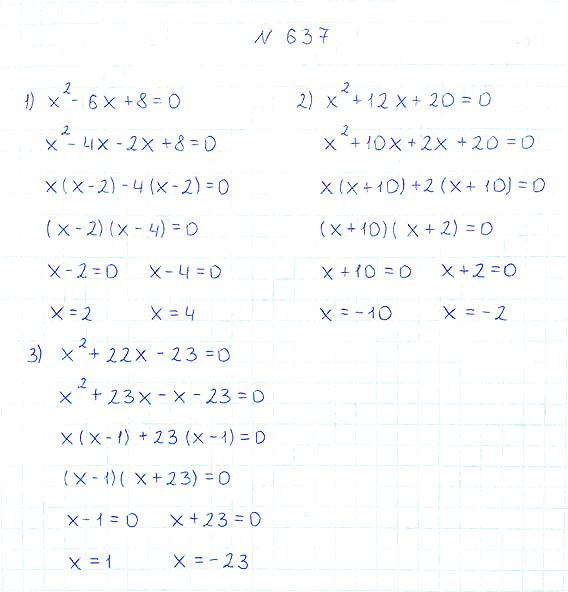 N 637
1) x² - 6x + 8 = 0
x² - 4x - 2x + 8 = 0
x(x-2) - 4(x-2) = 0
(x-2)(x-4) = 0
x-2=0 x-4=0
x=2 x=4
2) x² + 12x + 20 = 0
x² + 10x + 2x + 20 = 0
x(x+10) + 2(x+10) = 0
(x+10)(x+2) = 0
x+10=0 x+2=0
x=-10 x=-2
3) x² + 22x - 23 = 0
x² + 23x - x - 23 = 0
x(x-1) + 23(x-1) = 0
(x-1)(x+23) = 0
x-1=0 x+23=0
x=1 x=-23